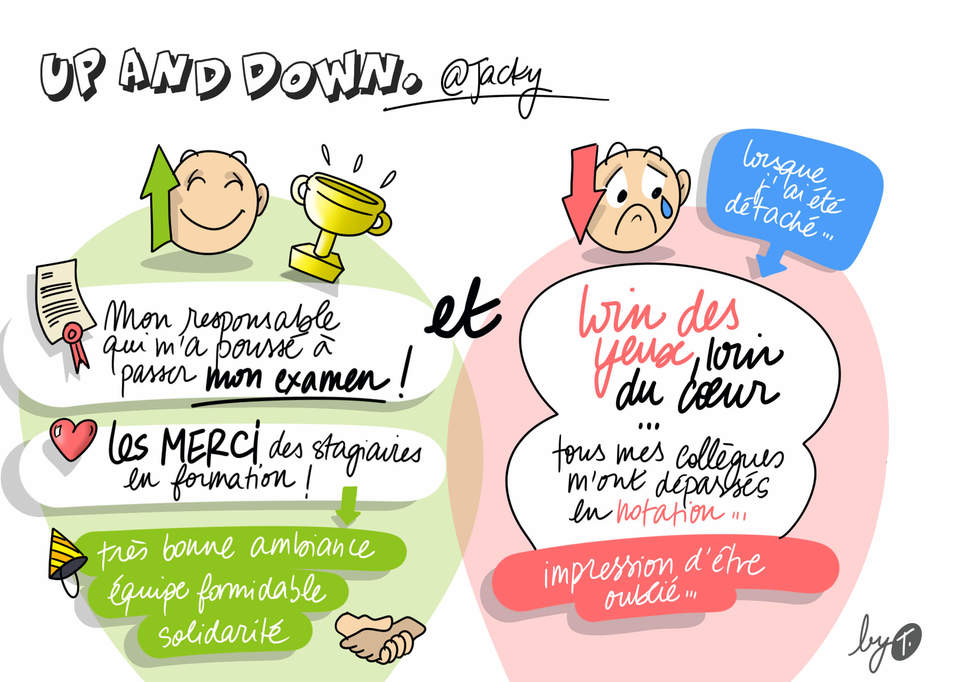 UP AND DOWN. @Jacky
Mon responsable
qui m'a poussé à
passer mon examen !
Les MERCI des stagiaires
en formation !
très bonne ambiance
équipe formidable
solidarité
et
lorsque
j'ai été
détaché...
loin des
yeux, loin
du cœur
...
tous mes collègues
m'ont dépassés
en notation...
impression d'être
oublié...
by T.